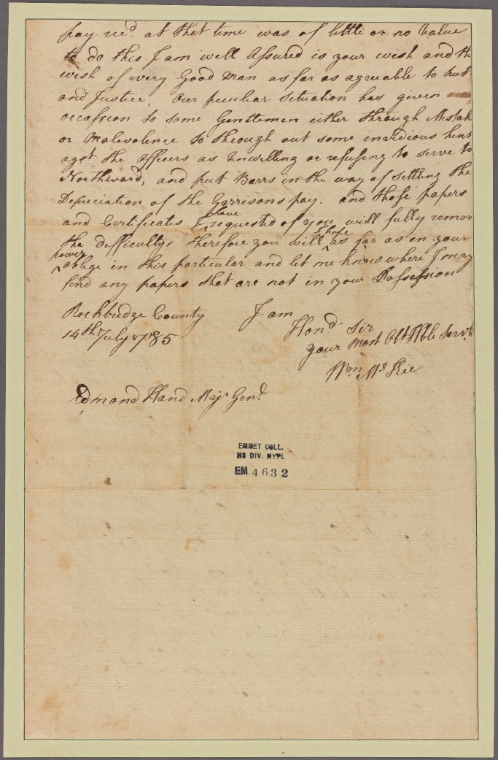 pay recd. at that time was of little or no Value
to do this I am well Assured is your wish and the
wish of every Good man as far as agreeable to truth
and Justice, Our peculiar Situation has given
occassion to some Gentlemen either through Mistak
or Malevolence to through out some invidious hints
agst the officers as Unwilling or refusing to serve to
Northward, and put Barrs in the way of settling the
Depreciation of the Garrisons pay. and those papers
and Certificates I have requested of you will fully remov
the difficultys therefore you will I hope as far as in your
power oblige in this particular and let me know where I may
find any papers that are not in your Possession
Rockbridge County I am
14th July 1785 Hond. Sir
your most Obt Hble Servt
Wm McKee
Edmond Hand Majr Genl.
EMMET COLL.
MS DIV. NYPL
EM 4632